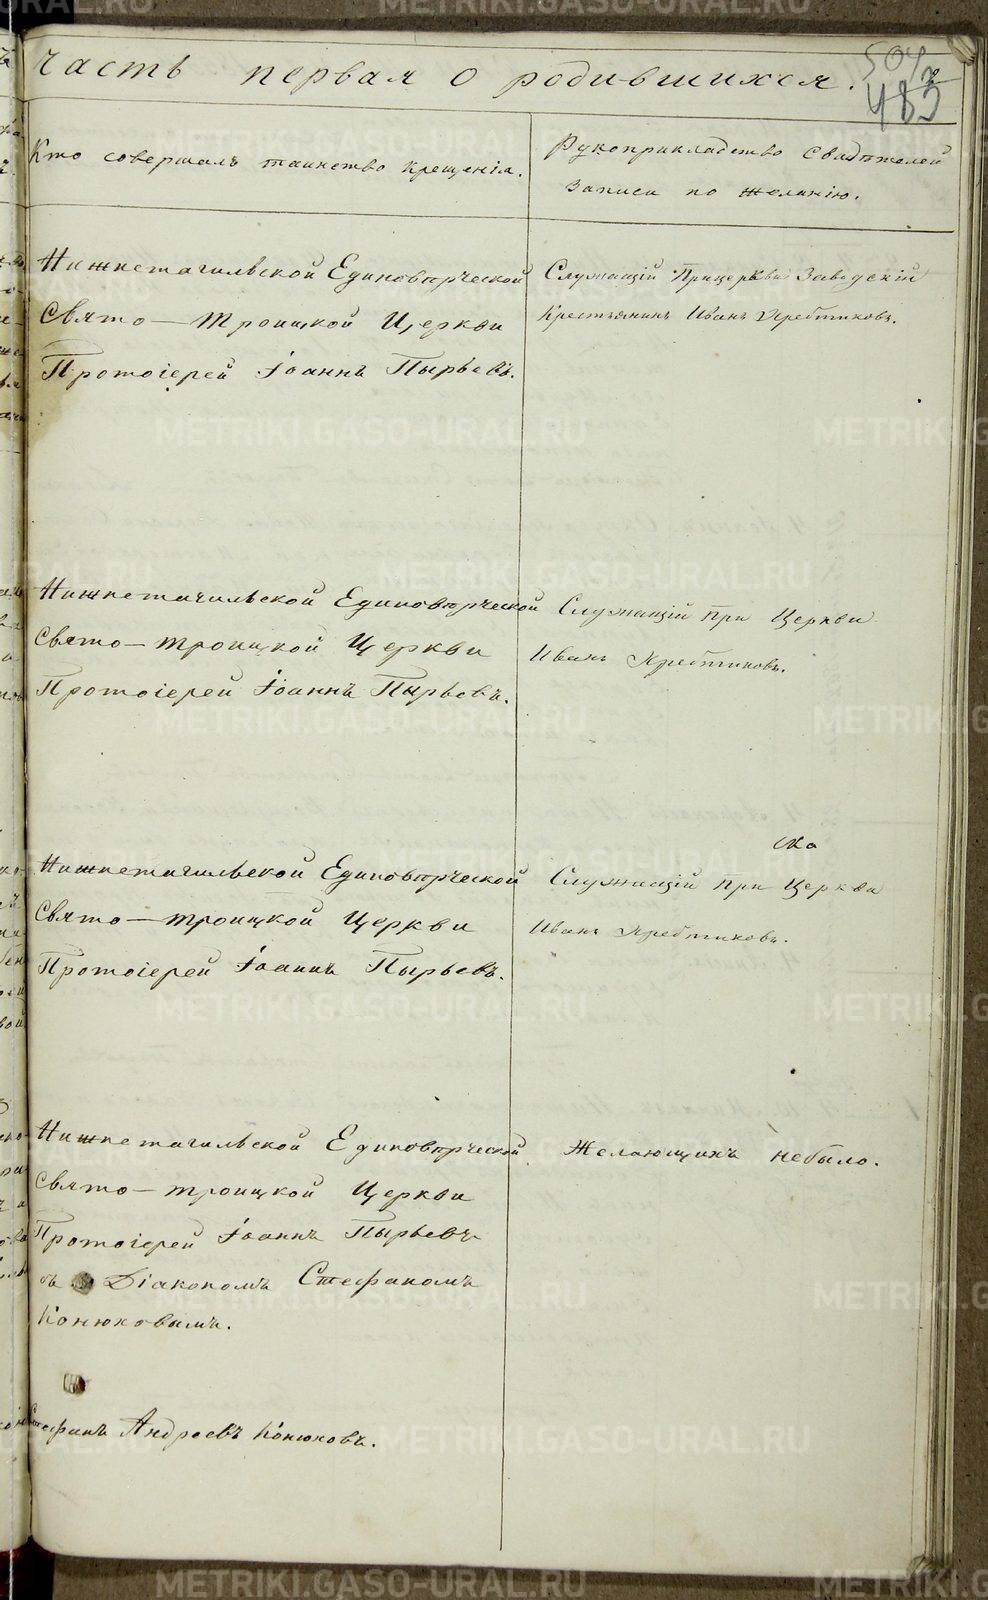 часть первая о родившихся.
504
483
Кто совершалъ таинство крещенія.
Рукоприкладство свидѣтелей
записи по желанію.
Нижнетагильской Единовѣрческой
Свято-Троицкой Церкви
Протоіерей Іоаннъ Пырьевъ.
Служащій При церкви Заводскій
Крестьянинъ Иванъ
Нижнетагильской Единовѣрческой
Свято-Троицкой Церкви
Протоіерей Іоаннъ Пырьевъ.
Служащій при Церкви
Иванъ
Нижнетагильской Единовѣрческой
Свято-Троицкой Церкви
Протоіерей Іоаннъ Пырьевъ.
Служащій при Церкви
Иванъ
Нижнетагильской Единовѣрческой
Свято-Троицкой Церкви
Протоіерей Іоаннъ Пырьевъ
съ Діакономъ Стефаномъ
Конюховымъ.
Желающихъ небыло.
Стефанъ Андреевъ Конюховъ.
METRIKI.GASO-URAL.RU